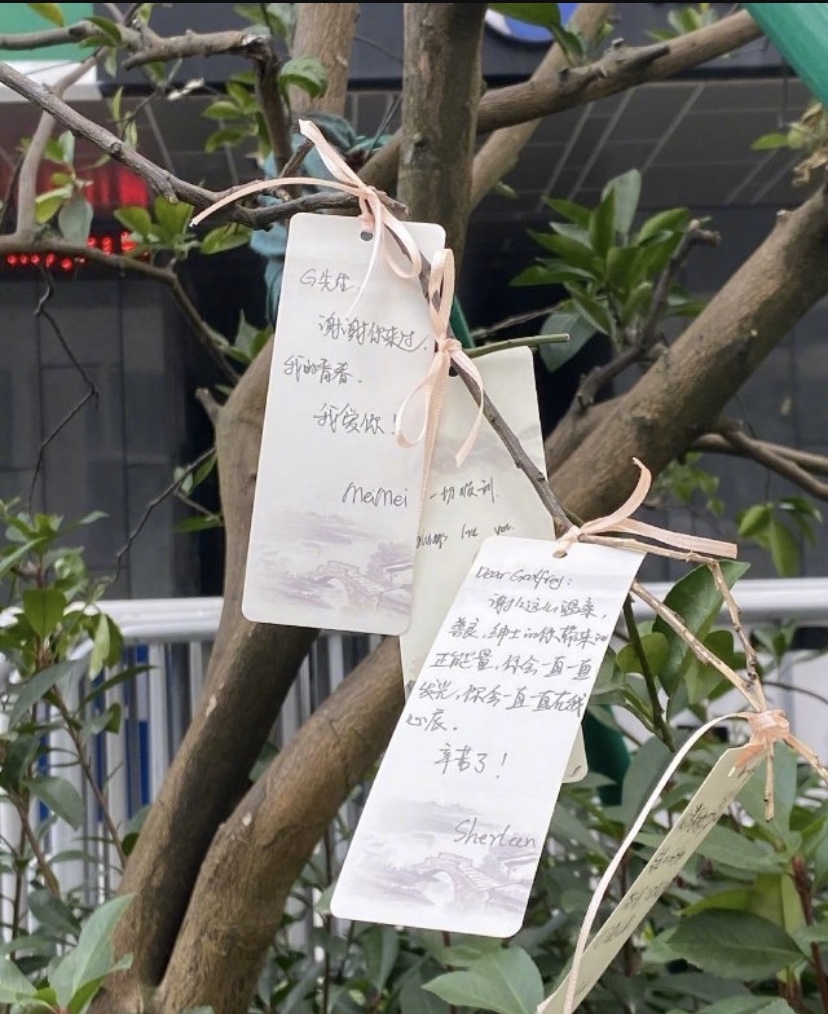 G先生，
谢谢你来过，
我的青春．
我爱你！
MeiMei
一切顺利．
always love you.
Dear Godfrey：
谢谢这么温柔，
善良，绅士的你带来的
正能量，你会一直一直
发光，你会一直一直在我
心底．
辛苦了！
Sherleen